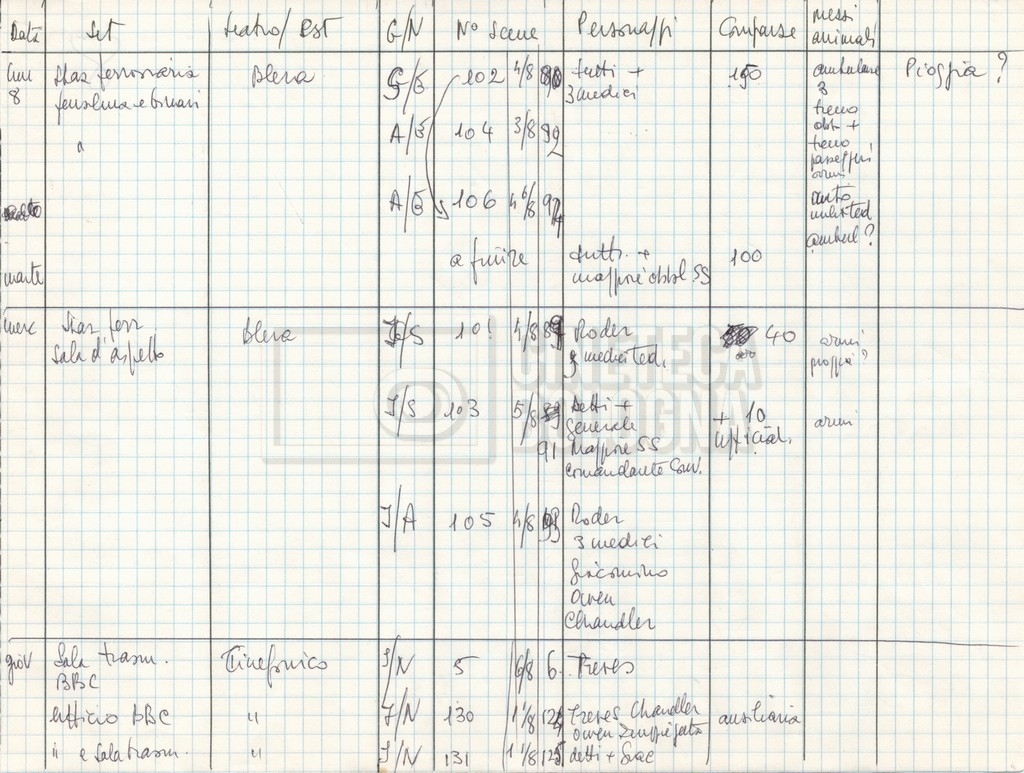 Data Set Teatro/Est G/N No Scene Personaggi Comparse mezzi animali
lun 8 Staz ferroviaria Blera G/E 102 4/8 tutti + 3 medici 150 Pioggia?
pensilina e binari
" A/E 104 3/8 92
treno
treno
passeggeri
armi
A/E 106 4 6/8 auto
ambul?
a finire tutti + 100
marte maggiore SS
merc Staz ferr Blera /S 101 4/8 Roder 40 armi
Sala d'aspetto 3 medici ted. pioggia?
I/S 103 5/8 detti + + 10 armi
generale ufficial.
91 Maggiore SS
Comandante Conv.
I/A 105 4/8 Roder
3 medici
Giacomino
Owen
Chandler
giov Sala trasm. Cinefonico I/N 5 6/8 6 Treves
BBC
Ufficio BBC " I/N 130 1 1/8 Treves Chandler ausiliaria
Owen Impiegata
" e Sala trasm. " I/N 131 1 1/8 125 detti + Giac
CINETECA
BOLOGNA